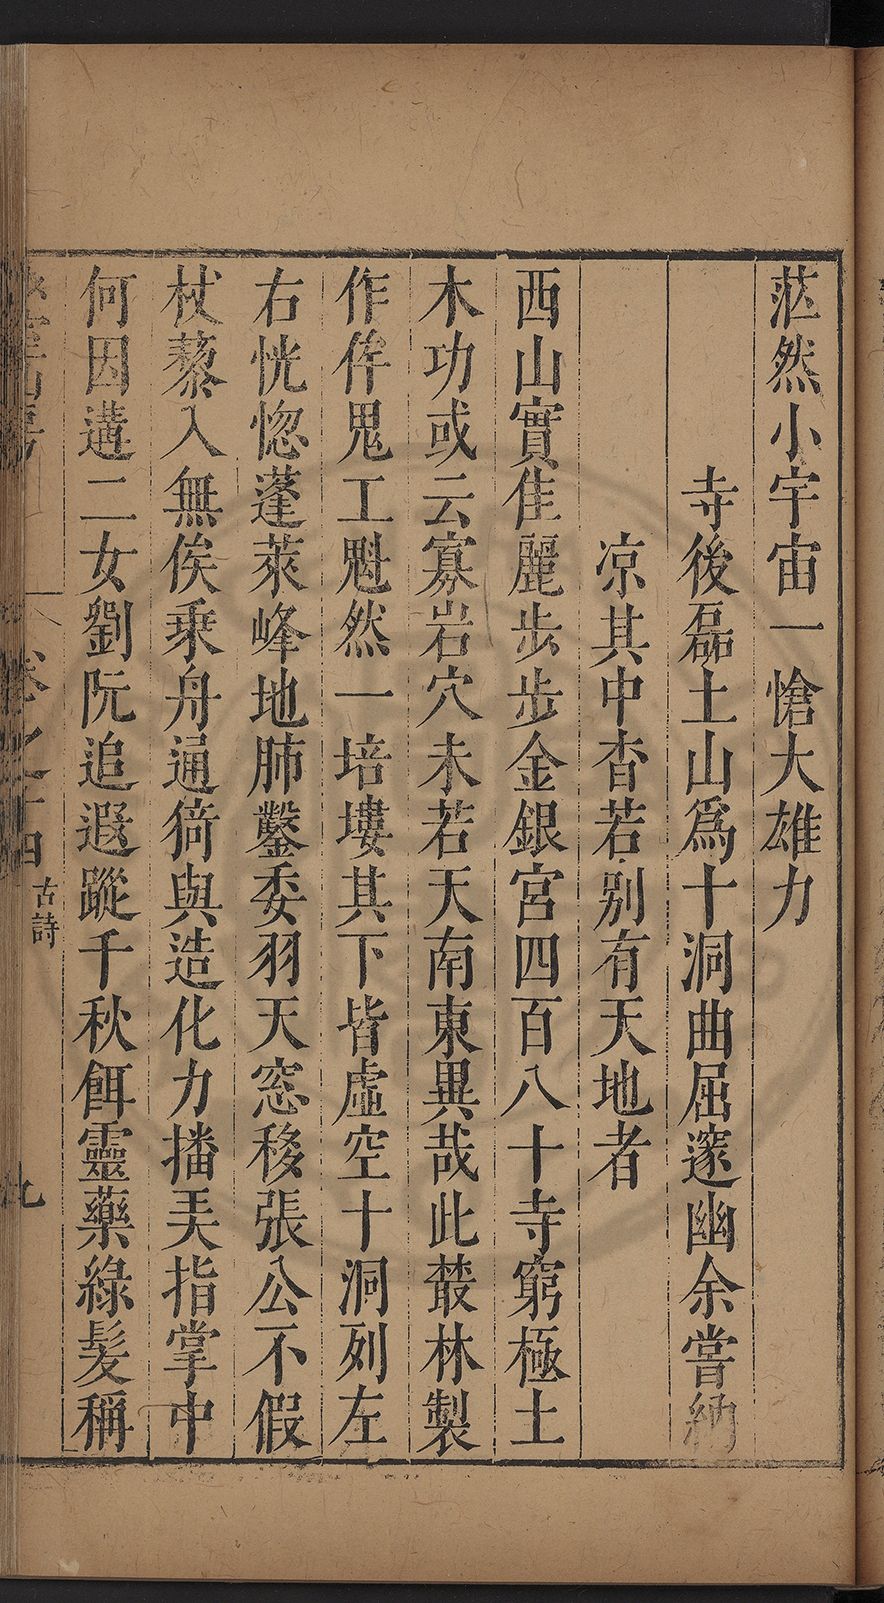 茫然小宇宙一愴大雄力
寺後磊土山爲十洞曲屈邃幽余嘗納
凉其中杳若别有天地者
西山實佳麗步步金銀宮四百八十寺窮極土
木功或云寡岩穴未若天南東異哉此叢林製
作侔鬼工魁然一培塿其下皆虛空十洞列左
右恍惚蓬萊峰地肺鑿委羽天窓移張公不假
杖藜入無俟乗舟通猗與造化力播弄指掌中
何因遘二女劉阮追遐蹤千秋餌靈藥綠髮稱
卷之十四 古詩 九